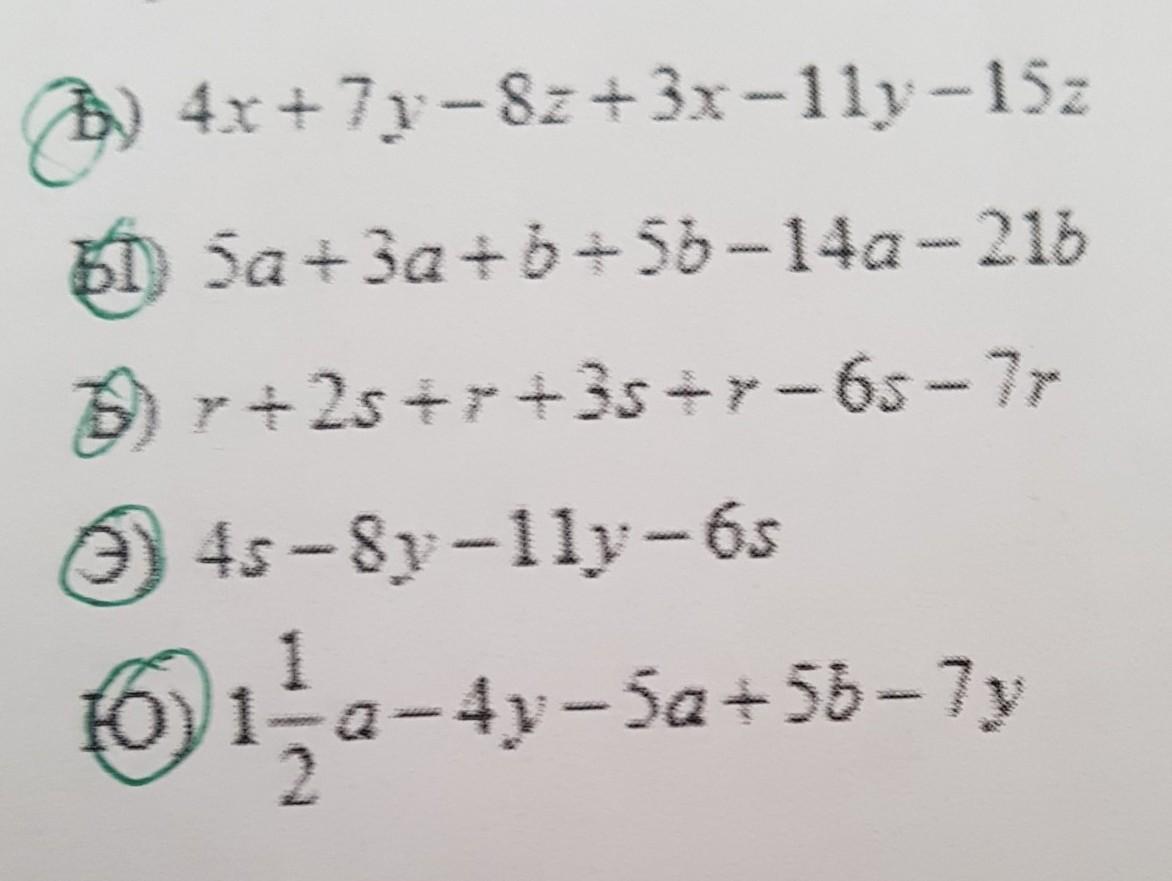 Ъ) 4x+7y−8z+3x−11y−15z
Ы) 5a+3a+b+5b−14a−21b
Ь) r+2s+r+3s+r−6s−7r
Э) 4s−8y−11y−6s
Ю) 1 1/2 a−4y−5a+5b−7y